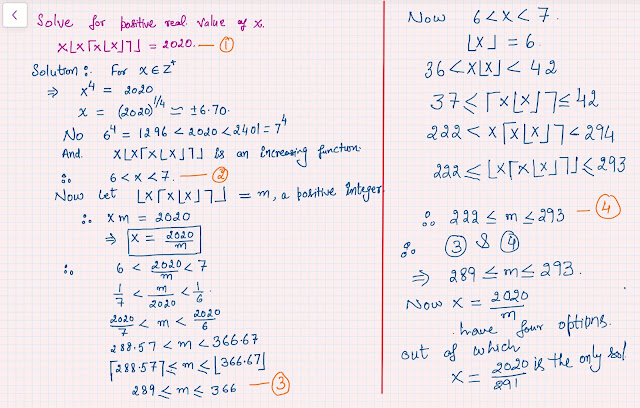 Solve for positive real value of x.
x⌊x⌈x⌊x⌋⌉⌋ = 2020. — ①
Solution: For x ∈ Z⁺
⇒ x⁴ = 2020
x = (2020)^1/4 ≃ ±6.70.
No 6⁴ = 1296 < 2020 < 2401 = 7⁴
And. x⌊x⌈x⌊x⌋⌉⌋ is an increasing function.
∴ 6 < x < 7. — ②
Now let ⌊x⌈x⌊x⌋⌉⌋ = m, a positive integer.
∴ xm = 2020
⇒ x = 2020/m
∴ 6 < 2020/m < 7
1/7 < m/2020 < 1/6
2020/7 < m < 2020/6
288.57 < m < 366.67
⌈288.57⌉ ≤ m ≤ ⌊366.67⌋
289 ≤ m ≤ 366 — ③
Now 6 < x < 7.
⌊x⌋ = 6.
36 < x⌊x⌋ < 42
37 ≤ ⌈x⌊x⌋⌉ ≤ 42
222 < x⌈x⌊x⌋⌉ < 294
222 ≤ ⌊x⌈x⌊x⌋⌉⌋ ≤ 293
∴ 222 ≤ m ≤ 293 — ④
∴ ③ & ④
⇒ 289 ≤ m ≤ 293.
Now x = 2020/m
have four options.
out of which
x = 2020/291 is the only sol